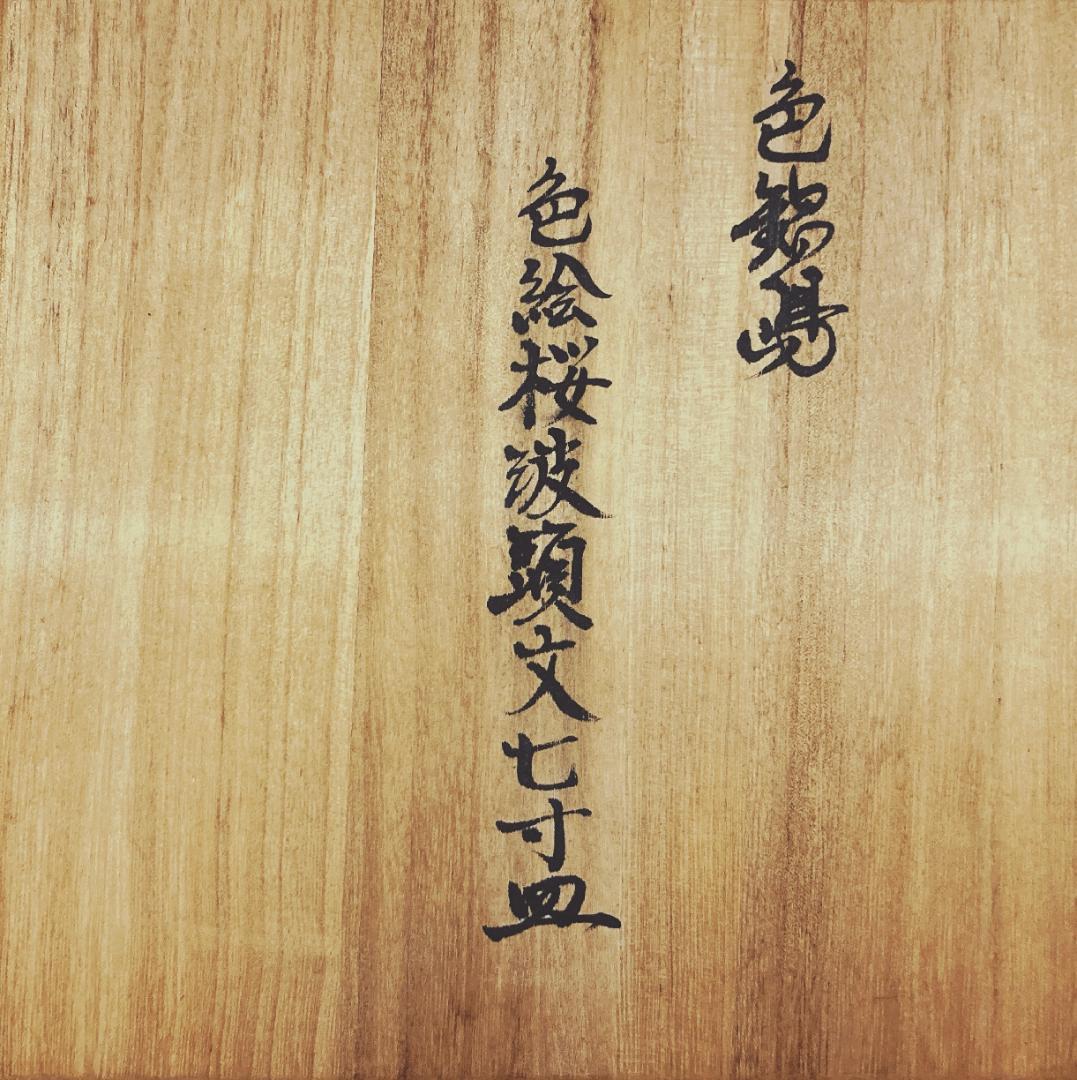 色鍋嶋
色絵桜波頭文七寸皿